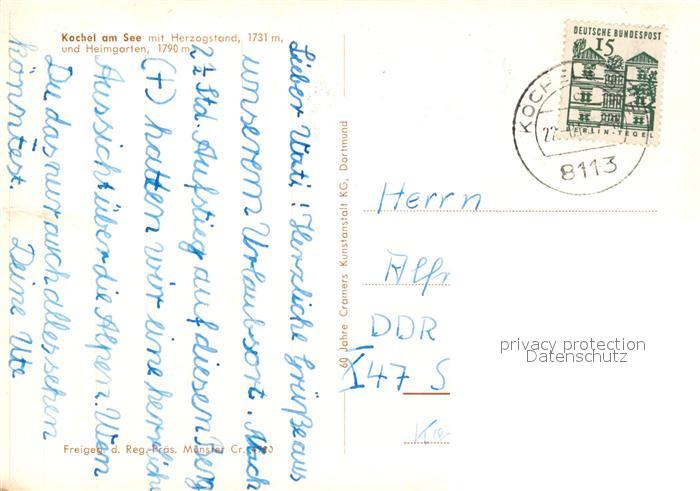 Kochel am See mit Herzogstand, 1731 m,
und Heimgarten, 1790 m
Lieber Vati! Herzliche Grüße aus
unserem Urlaubsort. Nach
2½ Std. Aufstieg auf diesen Berg
(+) hatten wir eine herrliche
Aussicht über die Alpen. Wenn
Du das nur auch alles sehen
könntest. Deine Ute
Freigeg. d. Reg.-Präs. Münster Cr.
60 Jahre Cramers Kunstanstalt KG, Dortmund
DEUTSCHE BUNDESPOST
15
BERLIN-TEGEL
KOCHE
8113
Herrn
Alfr
DDR
X 47 S
privacy protection
Datenschutz